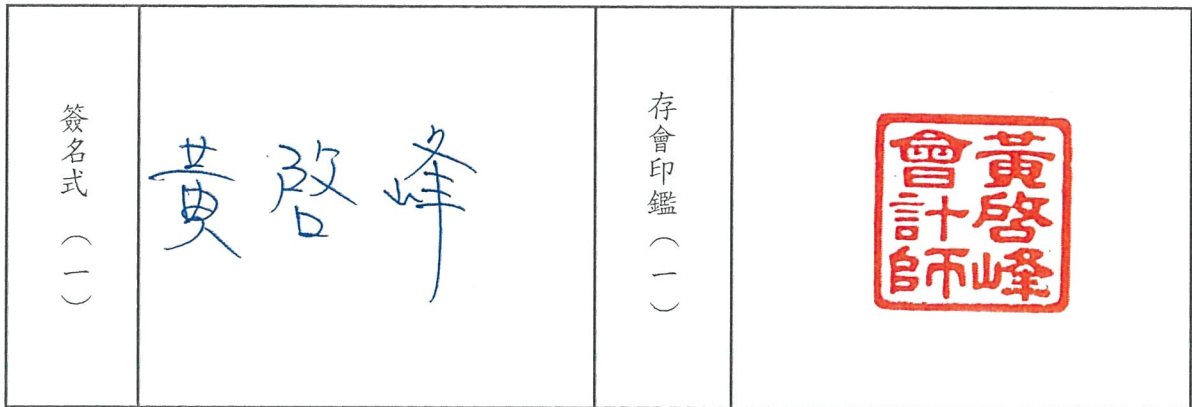 簽名式（一）
黃啓峰
存會印鑑（一）
黃啓峰
會計師